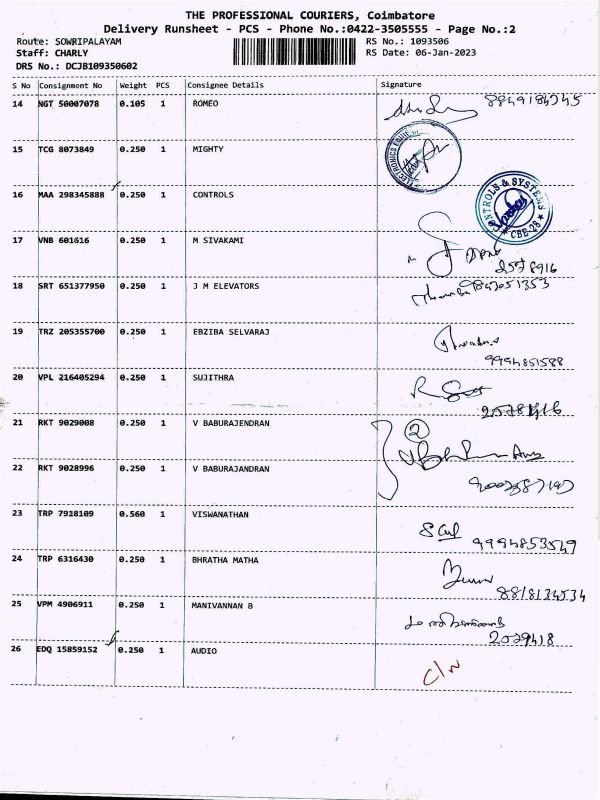 THE PROFESSIONAL COURIERS, Coimbatore
Delivery Runsheet - PCS - Phone No.:0422-3505555 - Page No.:2
Route: SOWRIPALAYAM RS No.: 1093506
Staff: CHARLY RS Date: 06-Jan-2023
DRS No.: DCJB109350602
S No Consignment No Weight PCS Consignee Details Signature
14 NGT 50007078 0.105 1 ROMEO
15 TCG 8073849 0.250 1 MIGHTY
ELECTRONICS
16 MAA 298345888 0.250 1 CONTROLS
CONTROLS & SYSTEMS
CBE-28
17 VNB 601616 0.250 1 M SIVAKAMI
2578916
18 SRT 651377950 0.250 1 J M ELEVATORS
9842051353
19 TRZ 205355700 0.250 1 EBZIBA SELVARAJ
9994851588
20 VPL 216405294 0.250 1 SUJITHRA
21 RKT 9029008 0.250 1 V BABURAJENDRAN
2
22 RKT 9028996 0.250 1 V BABURAJANDRAN
23 TRP 7918109 0.560 1 VISWANATHAN
9994853549
24 TRP 6316430 0.250 1 BHRATHA MATHA
8818134534
25 VPM 4906911 0.250 1 MANIVANNAN B
2029418
26 EDQ 15859152 0.250 1 AUDIO
C/N